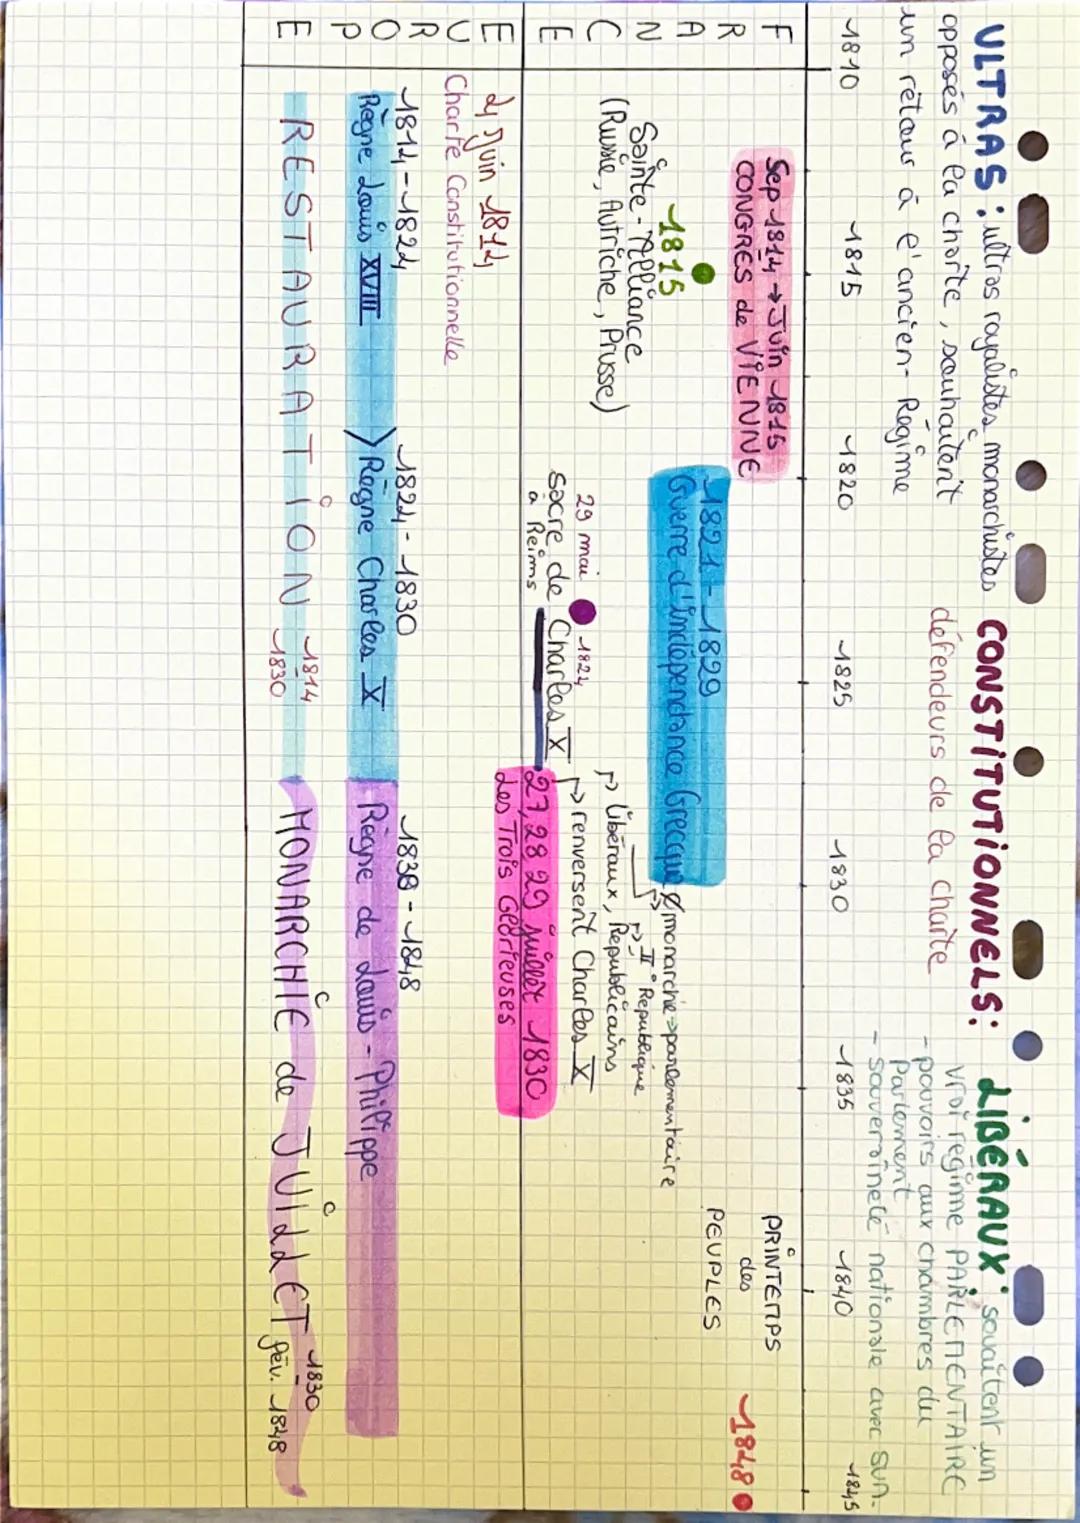 ULTRAS : ultras royalistes monarchistes
opposés à la charte, souhaitent
un retour à l'ancien-Regime
CONSTITUTIONNELS:
défendeurs de la charte
LIBÉRAUX : souaitent un
vrai régime PARLEMENTAIRE
- pouvoirs aux chambres du
Parlement
- souveraineté nationale avec suн-
1810
1815
1820
1825
1830
1835
1840
1845
FRANCE
Sep 1814 → Juin 1815
CONGRES de VIENNE
1815
Sainte-Alliance
(Russie, Autriche, Prusse)
1821-1829
Guerre d'indépendance Grecque
29 mai 1824
Sacre de Charles X
à Reims
monarchie → parlementaire
IIe Republique
libéraux, Republicains
renversent Charles X
27, 28 29 juillet 1830
Les Trois Glorieuses
PRINTEMPS
des
PEUPLES
1848
EUROPE
4 Juin 1814
Charte Constitutionnelle
1814-1824
Règne Louis XVIII
1824-1830
Règne Charles X
1830-1848
Règne de Louis-Philippe
RESTAURATION 1814
1830
MONARCHIE de JUILLET 1830
fév. 1848